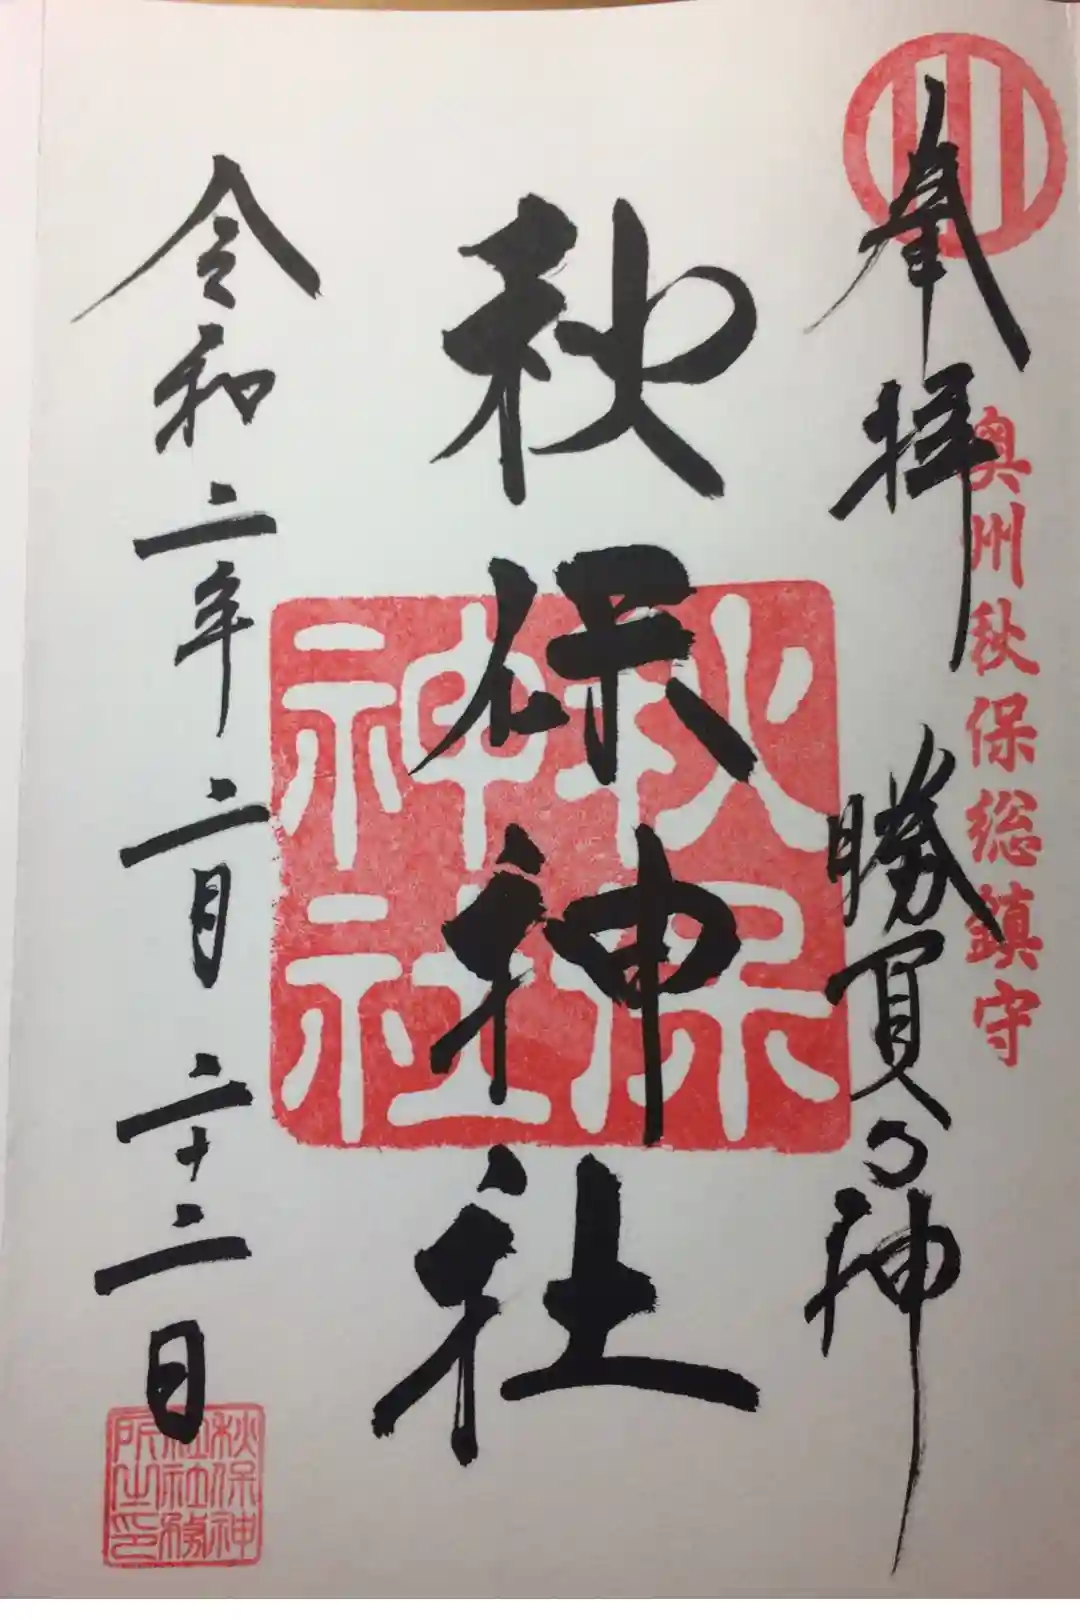 奥州秋保総鎮守
奉拝 勝負の神
秋保神社
秋保
神社
令和二年二月二十二日
秋保神
社社務
所之印